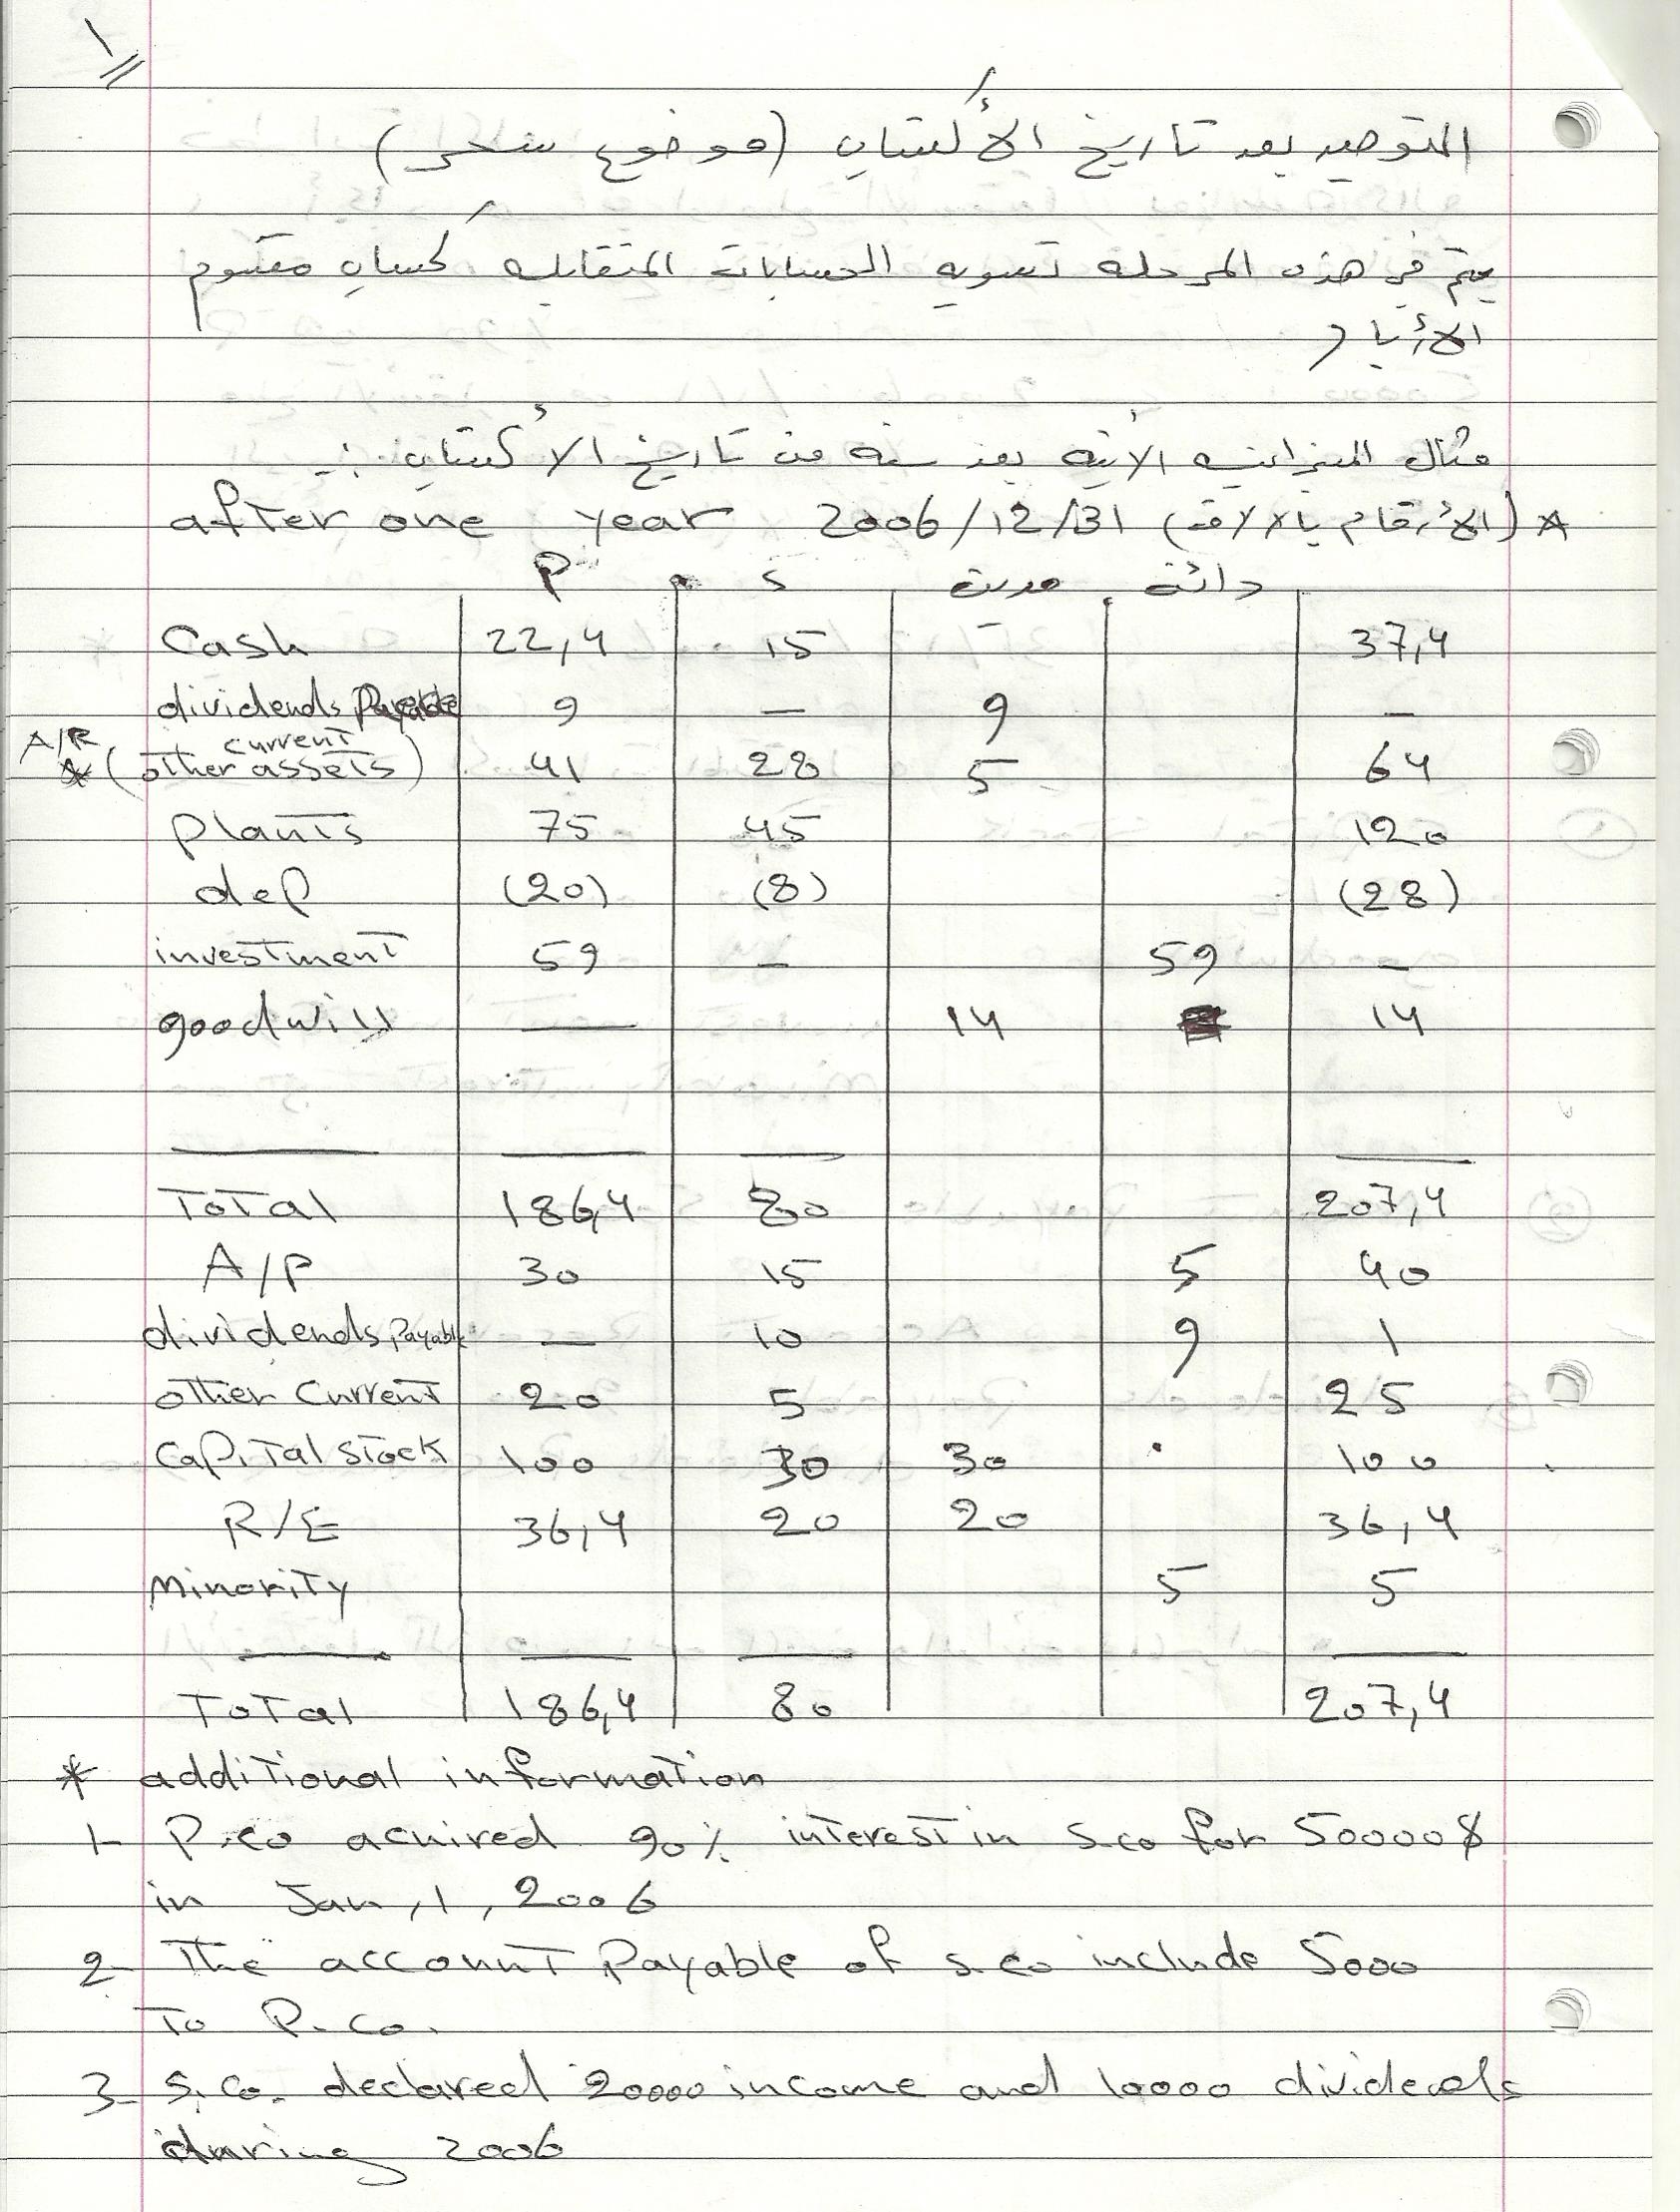 ١
التوحيد بعد تاريخ الأكتتاب (موضوع شحر)
يتم في هذه المرحله تسويه الحسابات المتقابله كحساب مقسوم
الأرباح
مثال الميزانيه الأتيه بعد سنه من تاريخ الأكتتاب :-
* (الأرقام بالالاف) 2006/12/31 after one year
P S مدين دائن
Cash 22,4 15 37,4
dividends Payable 9 — 9 —
A/R, * (other current assets) 41 28 5 64
plants 75 45 120
dep (20) (8) (28)
investment 59 — 59 —
goodwill — 14 14
Total 186,4 80 207,4
A/P 30 15 5 40
dividends Payable — 10 9 1
other Current 20 5 25
Capital stock 100 30 30 100
R/E 36,4 20 20 36,4
Minority 5 5
Total 186,4 80 207,4
* additional information
1- P.co acuired 90% interest in S.co for 50000$
in Jan, 1, 2006
2- The account Payable of s.co include 5000
To P.Co.
3- S.Co. declared 20000 income and 10000 dividends
during 2006